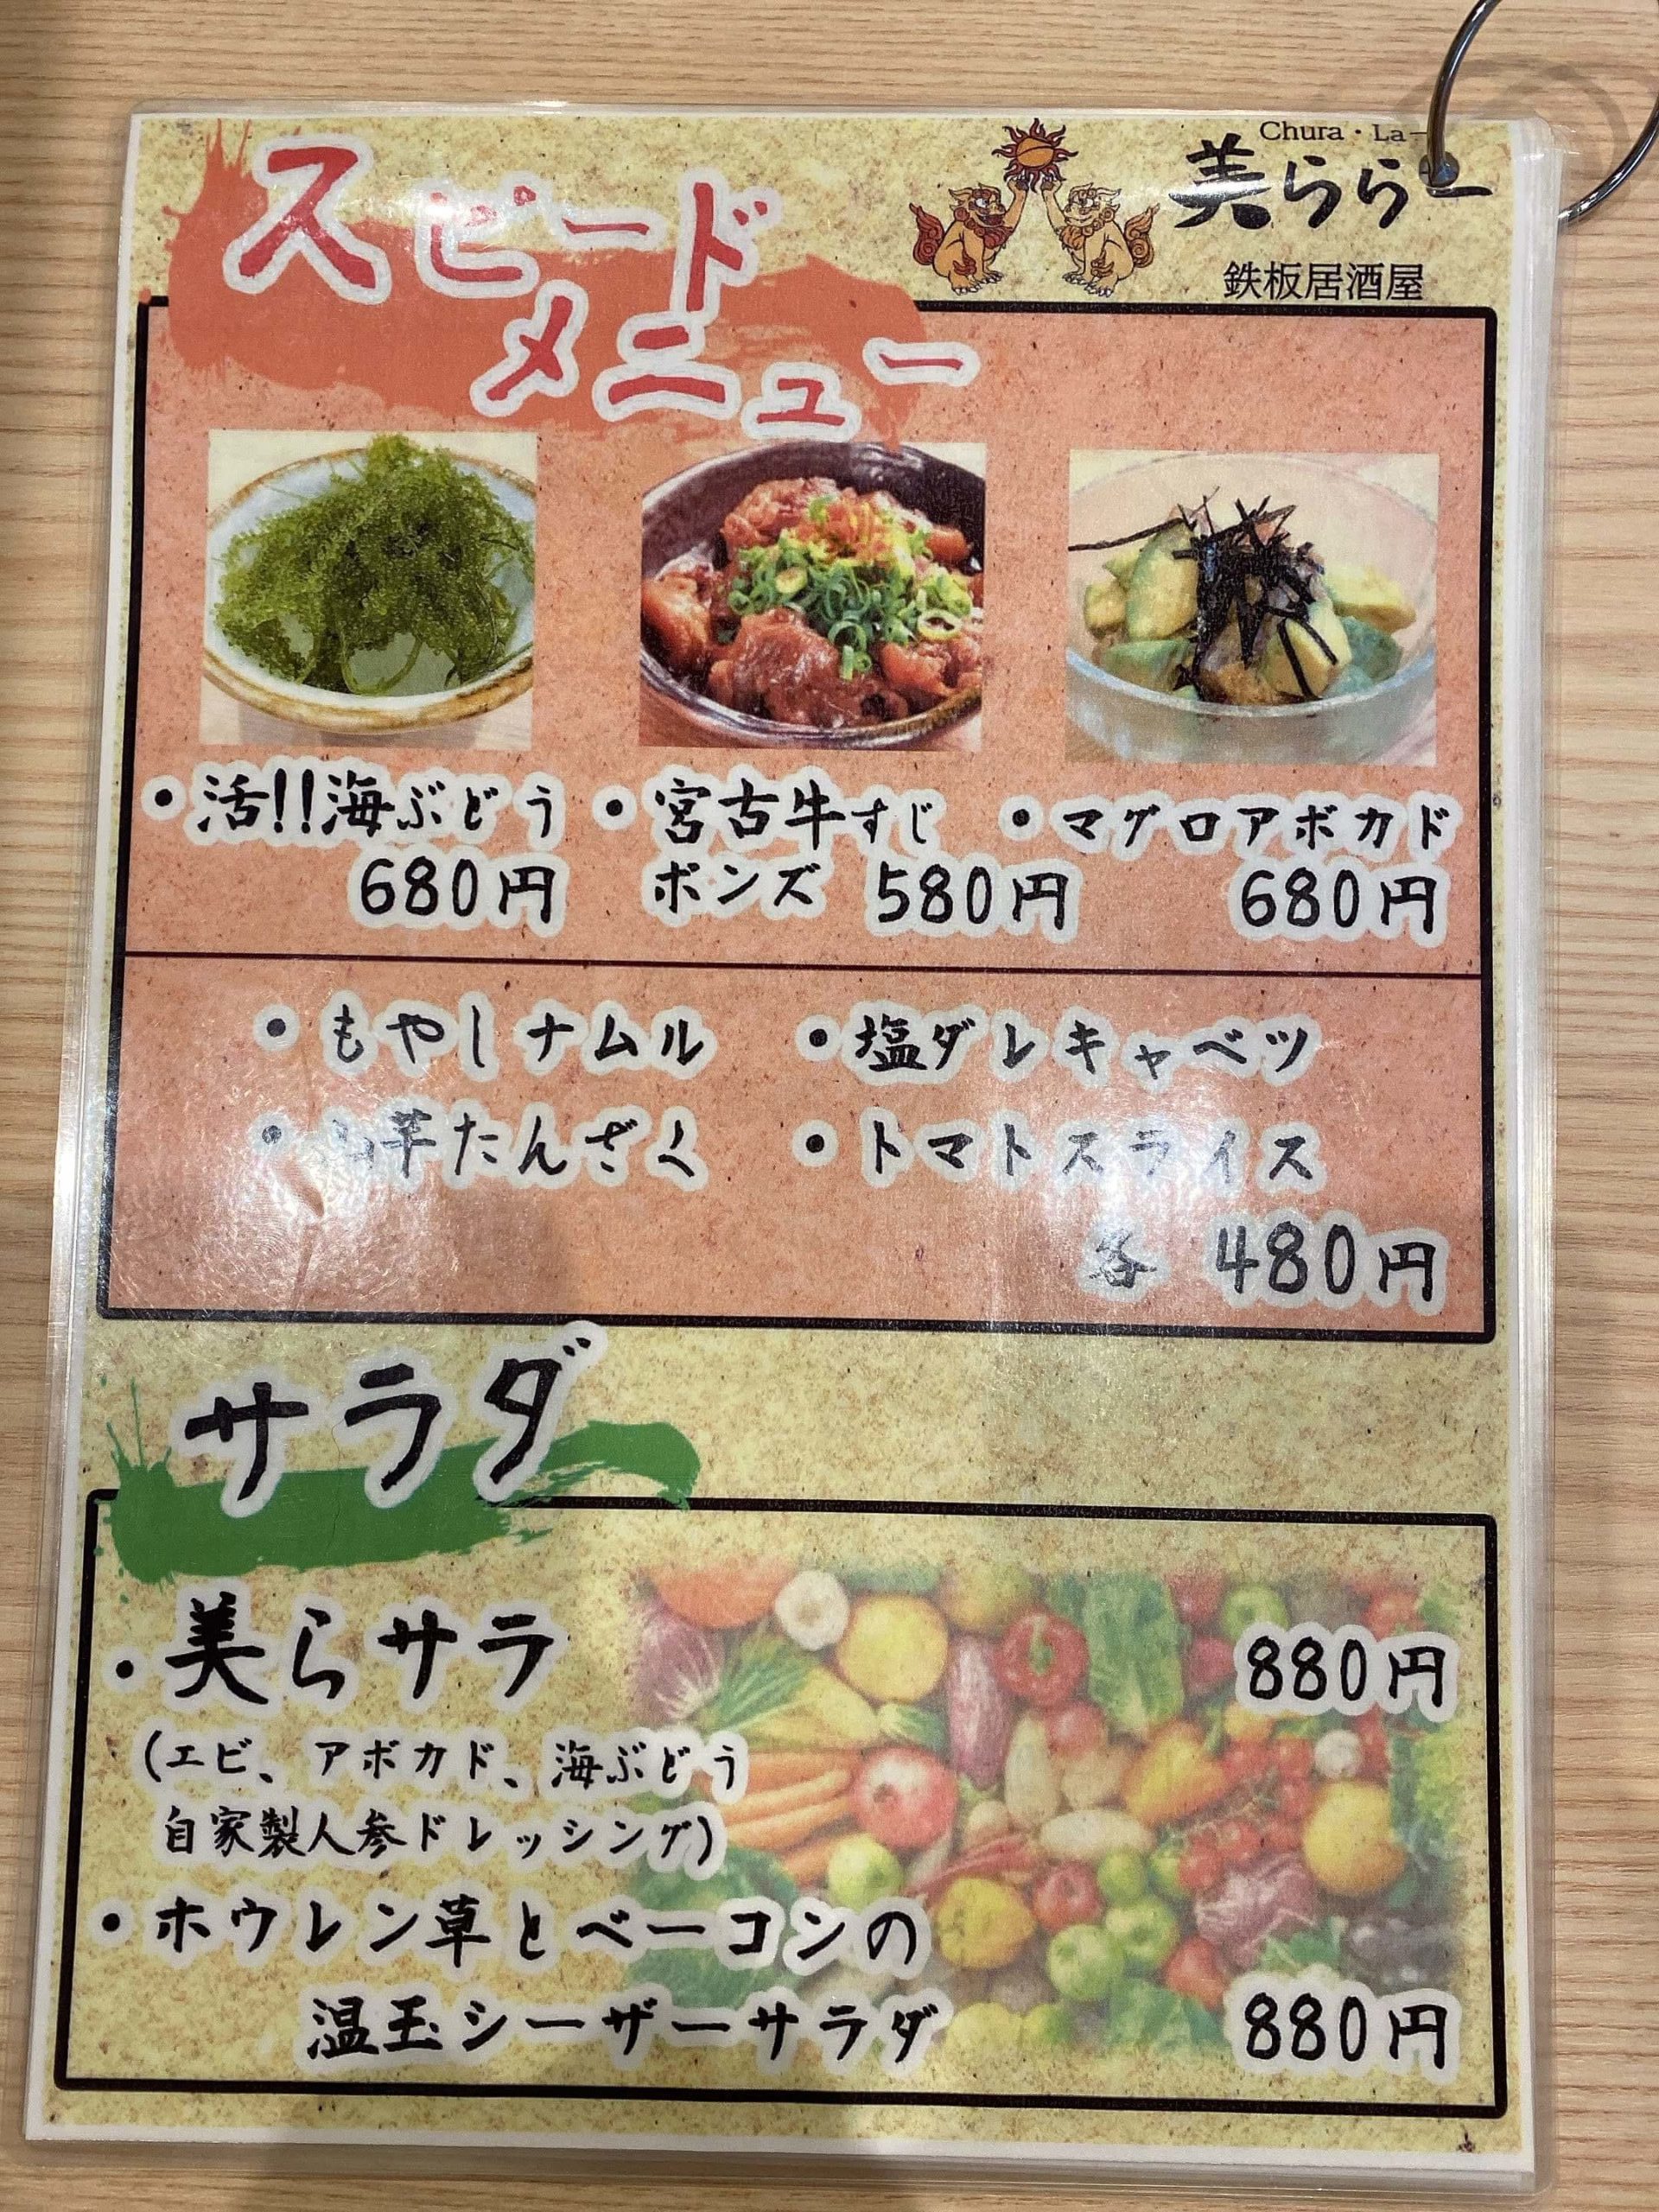 Chura・La－
美ららー
鉄板居酒屋
スピード
メニュー
・活!!海ぶどう
680円
・宮古牛すじ
ポンズ 580円
・マグロアボカド
680円
・もやしナムル ・塩ダレキャベツ
・山芋たんざく ・トマトスライス
各 480円
サラダ
・美らサラ 880円
(エビ、アボカド、海ぶどう
自家製人参ドレッシング)
・ホウレン草とベーコンの
温玉シーザーサラダ 880円